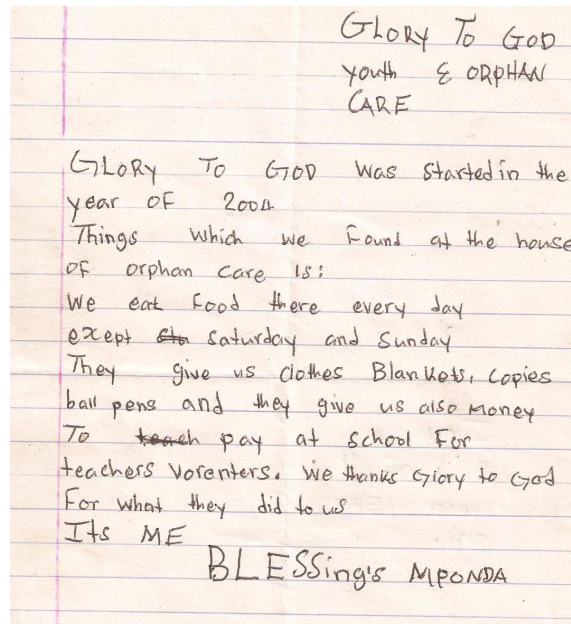 GLORY TO GOD
youth & ORPHAN
CARE
GLORY TO GOD was started in the
year OF 2004
Things which we Found at the house
OF orphan care is:
We eat Food there every day
except saturday and Sunday
They give us clothes Blankets, copies
ball pens and they give us also money
To pay at school For
teachers Vorenters. We thanks Glory to God
For what they did to us
Its ME
BLESSing's MPONDA